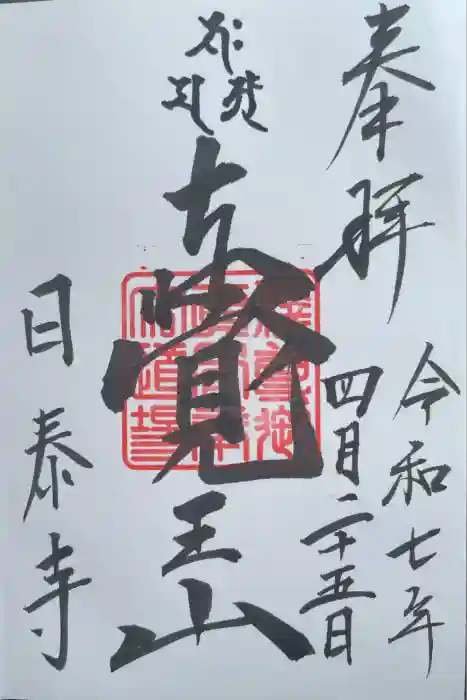 奉拝
令和七年
四月二十五日
覺王山
日泰寺